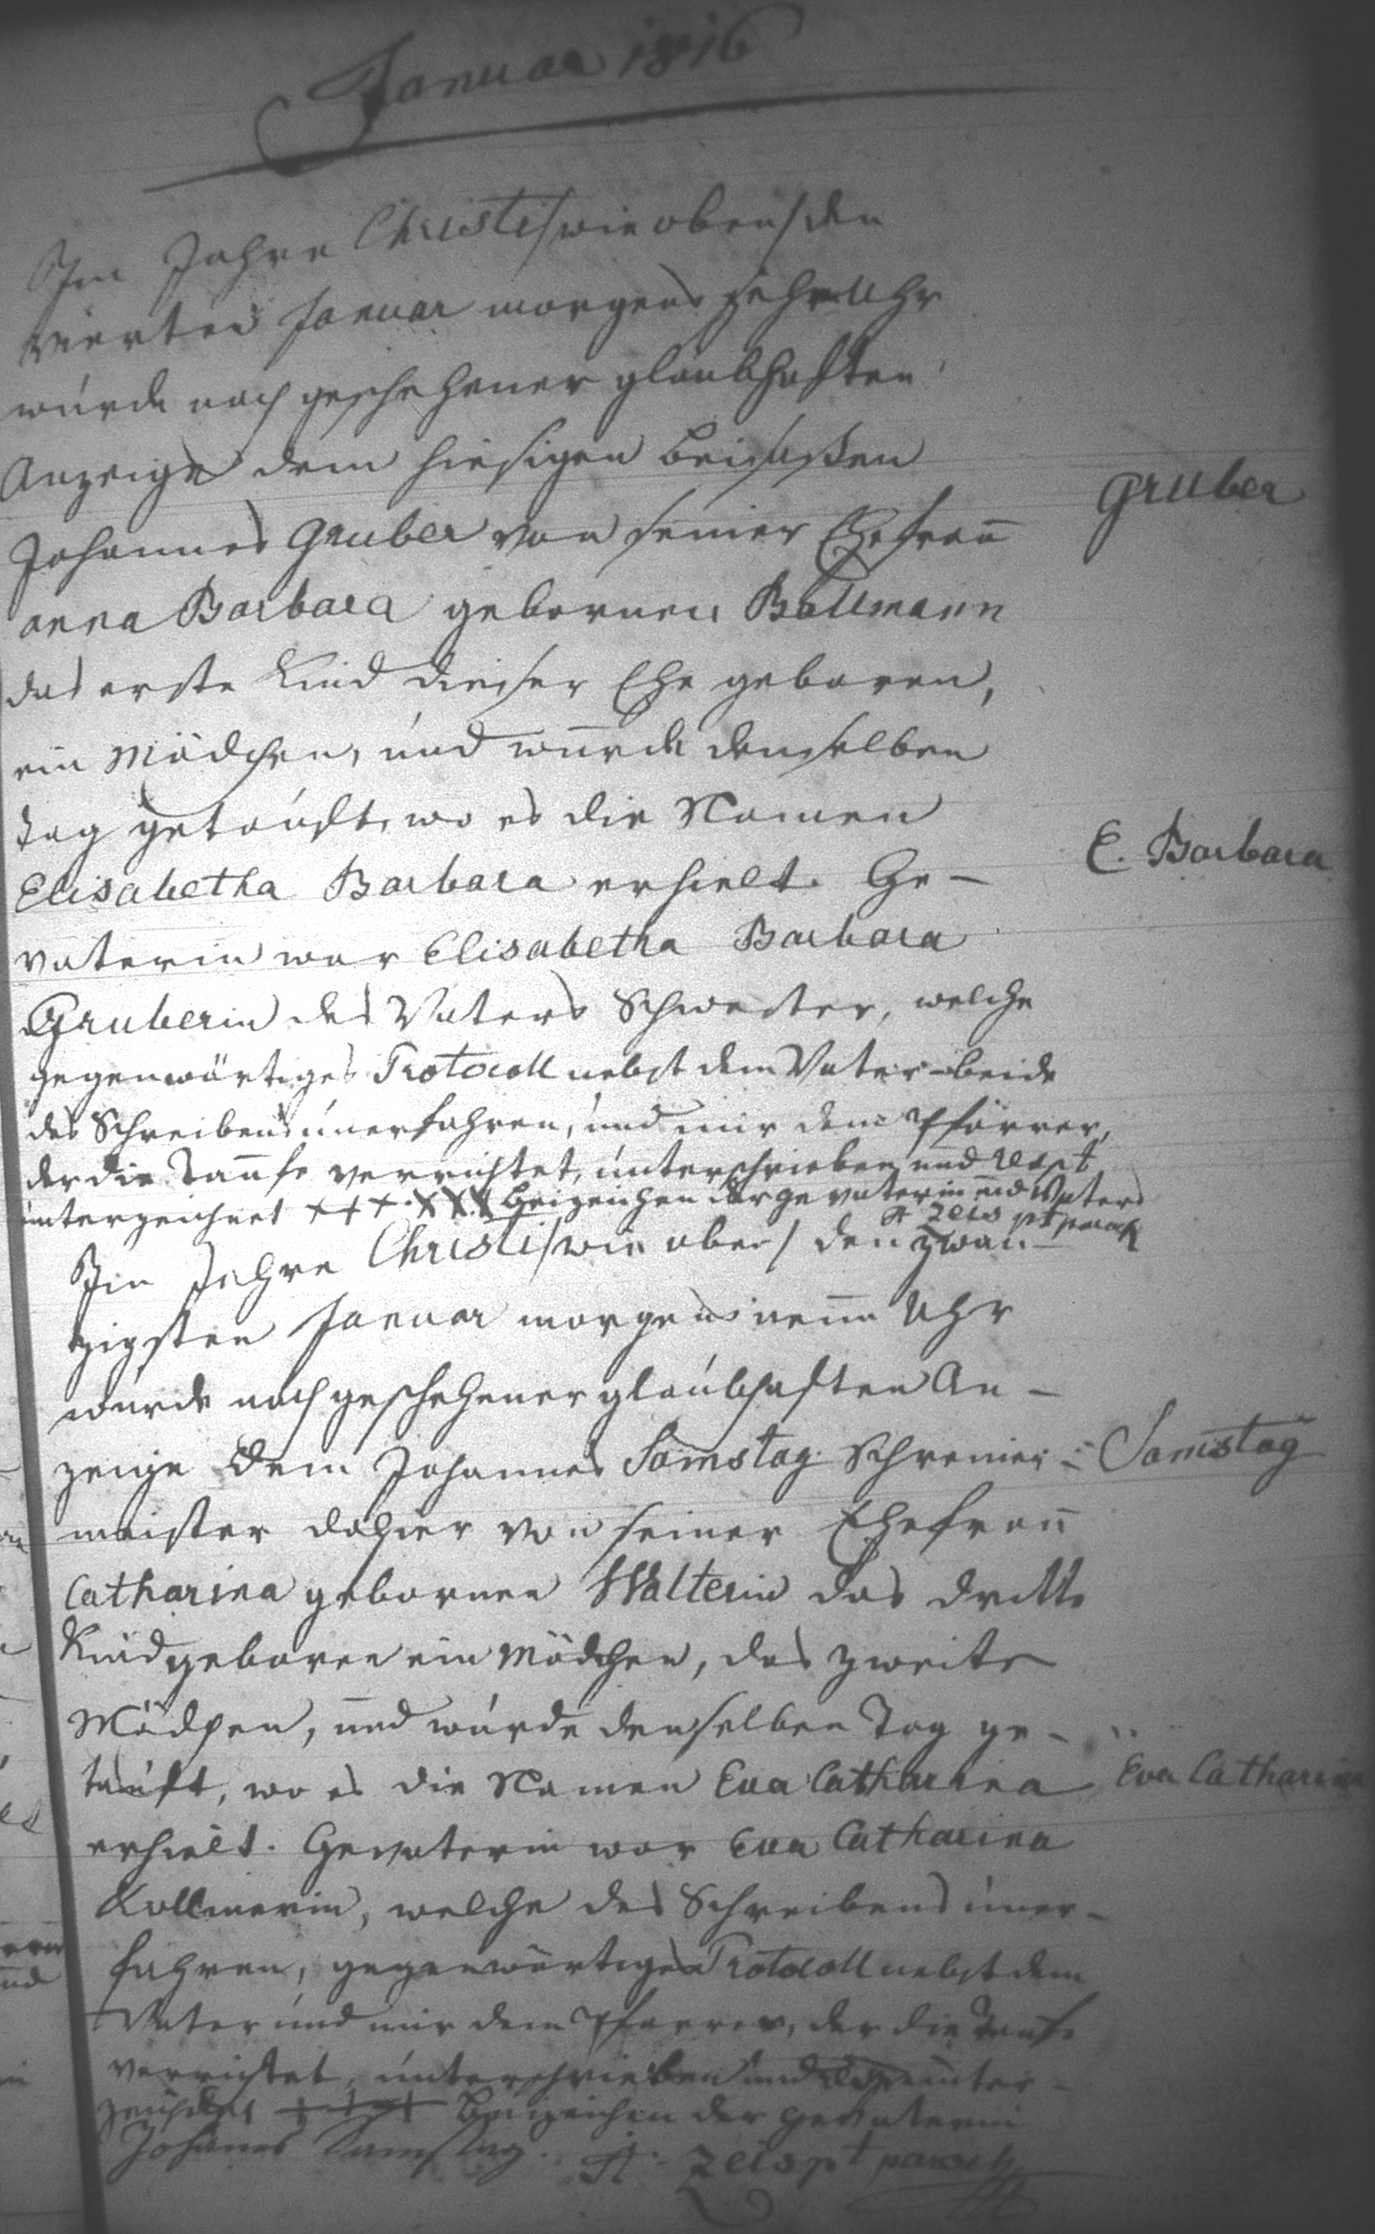 Januar 1816
Im Jahre Christi /wie oben/ den
vierten Januar morgens zehn Uhr
wurde nach geschehener glaubhaften
Anzeige dem hiesigen Beisaßen
Johannes Gruber von seiner Ehefrau
Gruber
anna Barbara gebornen Bollmann
das erste Kind dieser Ehe geboren,
ein Mädchen, und wurde denselben
tag getauft, wo es die Namen
Elisabetha Barbara erhielt. Ge-
E. Barbara
vaterin war Elisabetha Barbara
Gruberin des Vaters Schwester, welche
gegenwärtiges Protocoll nebst dem Vater beide
des Schreibens unerfahren, und mir dem Pfarrer,
der die Taufe verrichtet, unterschrieben und respt
unterzeichnet +++ xxx Beizeichen der gevaterin und Vaters
Im Jahre Christi /wie oben/ den zwan-
zigsten Januar morgens neun Uhr
wurde nach geschehener glaubhaften An-
zeige dem Johannes Samstag Schreiner-
Samstag
meister dahier von seiner Ehefrau
Catharina gebornen Walterin das dritte
Kind geboren ein Mädchen, das zweite
Mädchen, und wurde denselben Tag ge-
tauft, wo es die Namen Eva Catharina
Eva Catharina
erhielt. Gevaterin war Eva Catharina
Kollmerin, welche des Schreibens uner-
fahren, gegenwärtiges Protocoll nebst dem
Vater und mir dem Pfarrer, der die Taufe
verrichtet, unterschrieben und unter-
zeichnet +++ Beizeichen der gevaterin
Johannes Samstag.